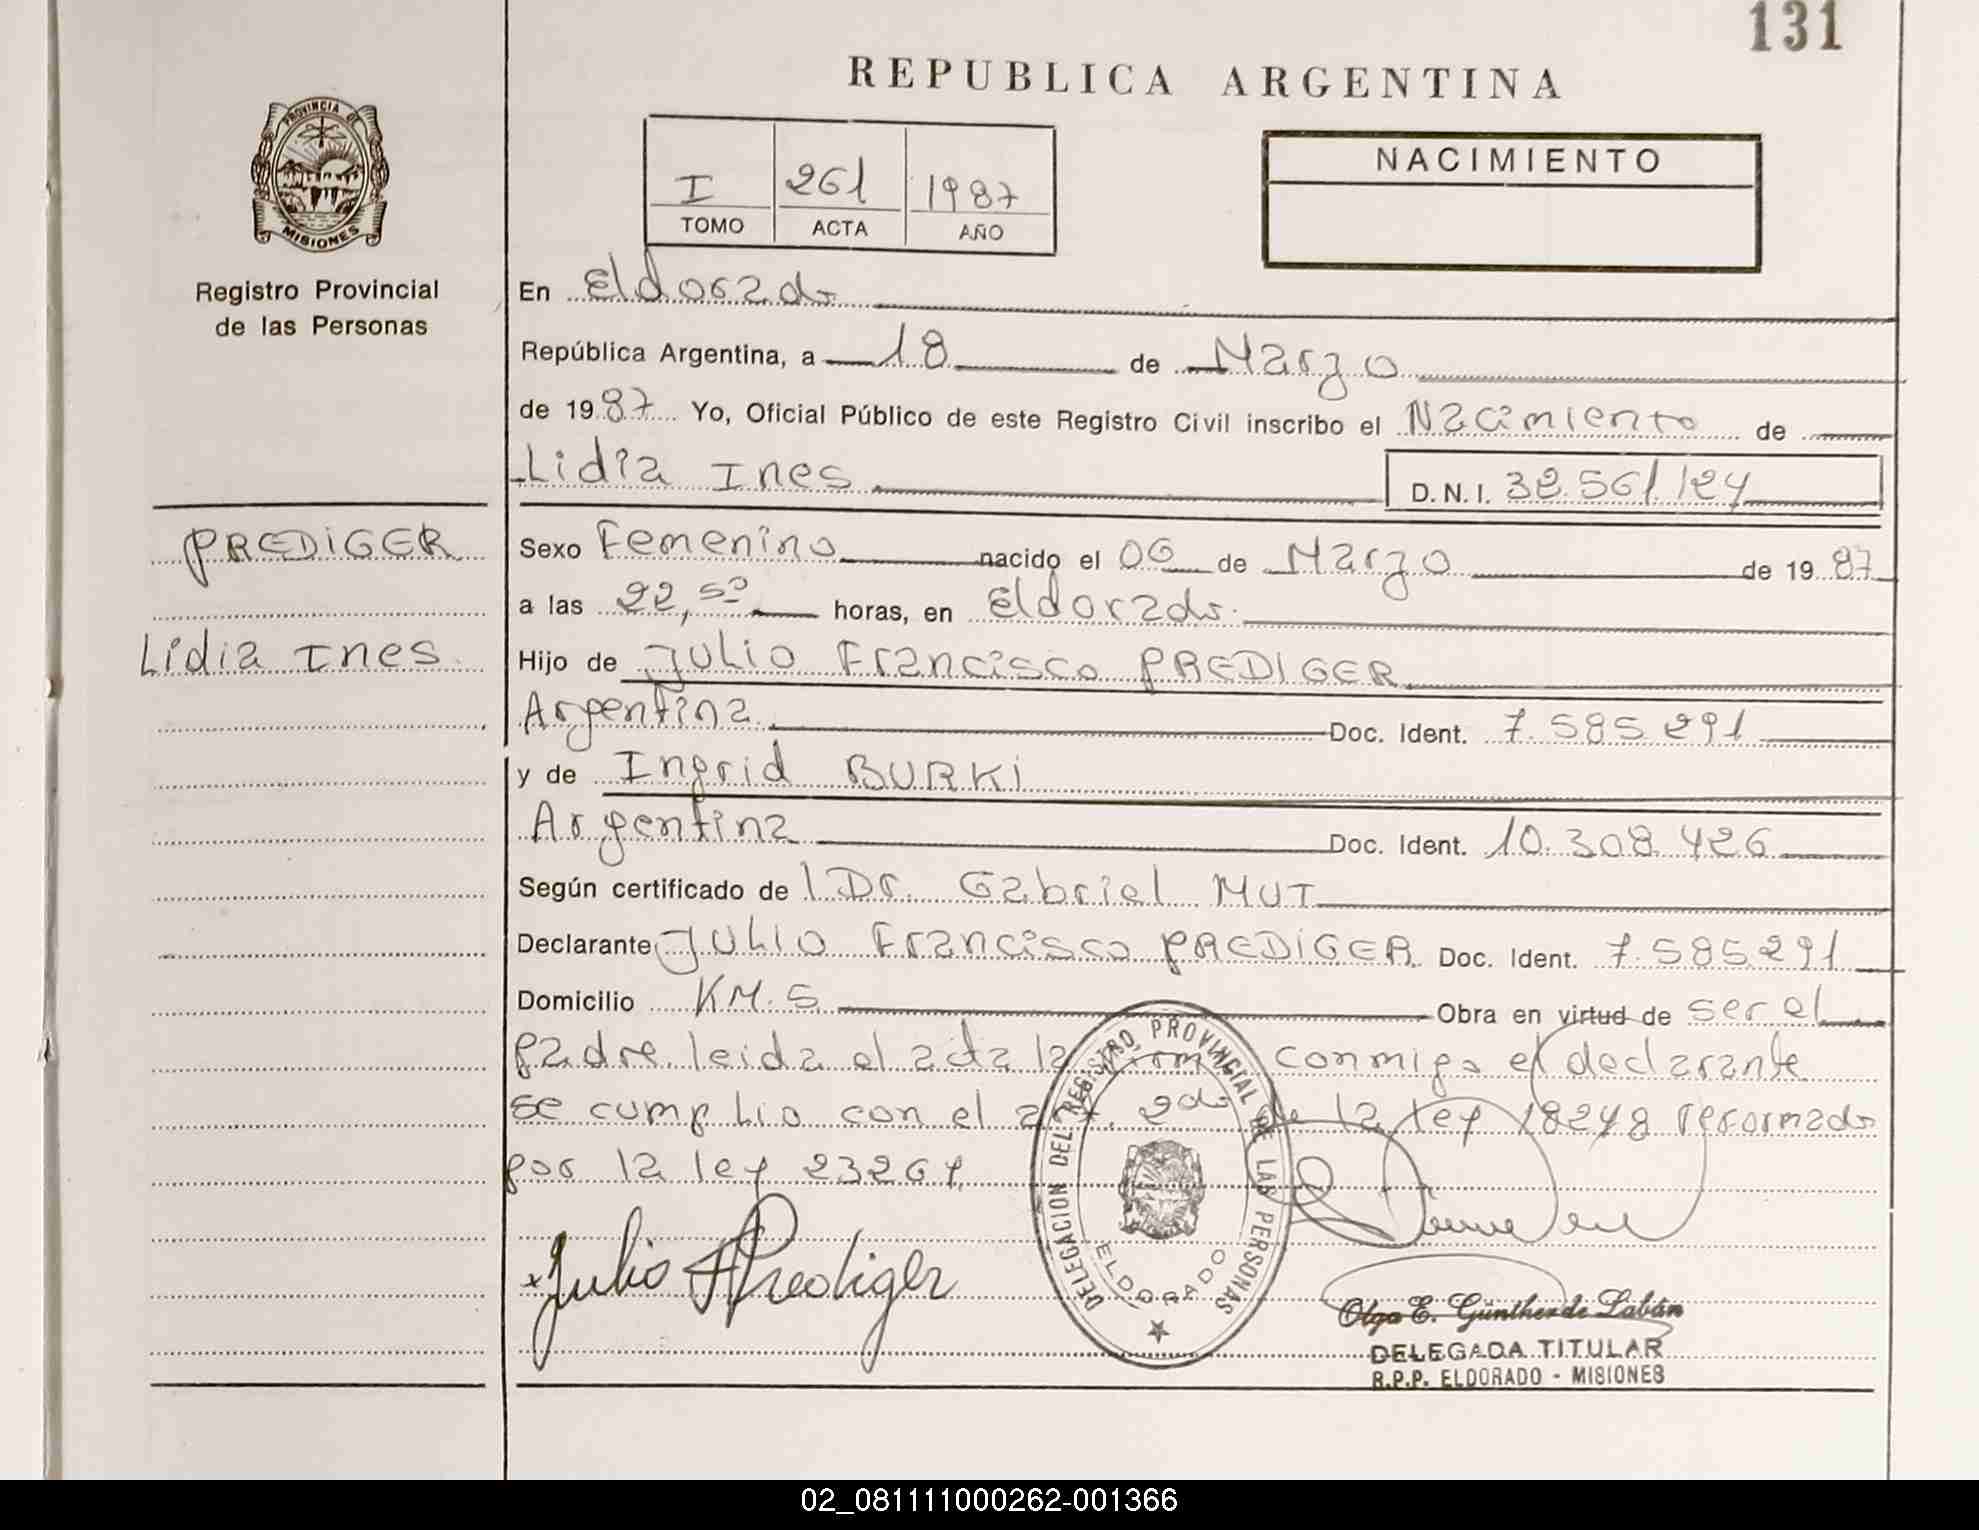 131
REPUBLICA ARGENTINA
PROVINCIA DE
MISIONES
Registro Provincial
de las Personas
I 261 1987
TOMO ACTA AÑO
NACIMIENTO
En Eldorado
República Argentina, a 18 de Marzo
de 1987 Yo, Oficial Público de este Registro Civil inscribo el Nacimiento de
Lidia Ines D.N.I. 32.561.124
PREDIGER
Lidia Ines
Sexo Femenino nacido el 06 de Marzo de 1987
a las 22,50 horas, en Eldorado.
Hijo de Julio Francisco PREDIGER
Argentina Doc. Ident. 7.585.291
y de Ingrid BURKI
Argentina Doc. Ident. 10.308.426
Según certificado de l Dr. Gabriel MUT
Declarante Julio Francisco PREDIGER Doc. Ident. 7.585.291
Domicilio KM. 5 Obra en virtud de ser el
padre. leida el acta la conmigo el declarante
se cumplio con el art. 2do de la ley 18248 reformado
por la ley 23264.
Julio F Prediger
DELEGACION DEL REGISTRO PROVINCIAL DE LAS PERSONAS
ELDORADO
Olga E. Günther de Labán
DELEGADA TITULAR
R.P.P. ELDORADO - MISIONES
02_081111000262-001366